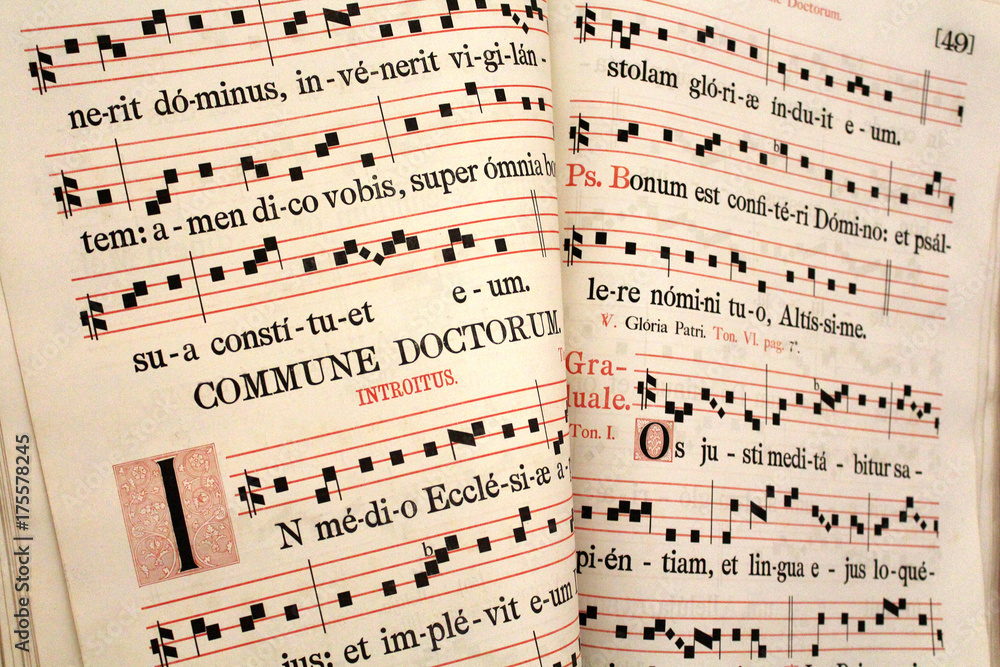 ne-rit dó-minus, in-vé-nerit vi-gi-lán-
tem: a-men di-co vobis, super ómnia
su-a constí-tu-et e-um.
COMMUNE DOCTORUM.
INTROITUS.
IN mé-di-o Ecclé-si-æ a-
jus: et im-plé-vit e-um
Doctorum.
[49]
stolam gló-ri-æ ín-du-it e-um.
Ps. Bonum est confi-té-ri Dómi-no: et psál-
le-re nómi-ni tu-o, Altís-si-me.
V. Glória Patri. Ton. VI. pag. 7*.
Gra-
duale.
Ton. I.
Os ju-sti medi-tá-bitur sa-
pi-én-tiam, et lin-gua e-jus lo-qué-
Adobe Stock | #175578245